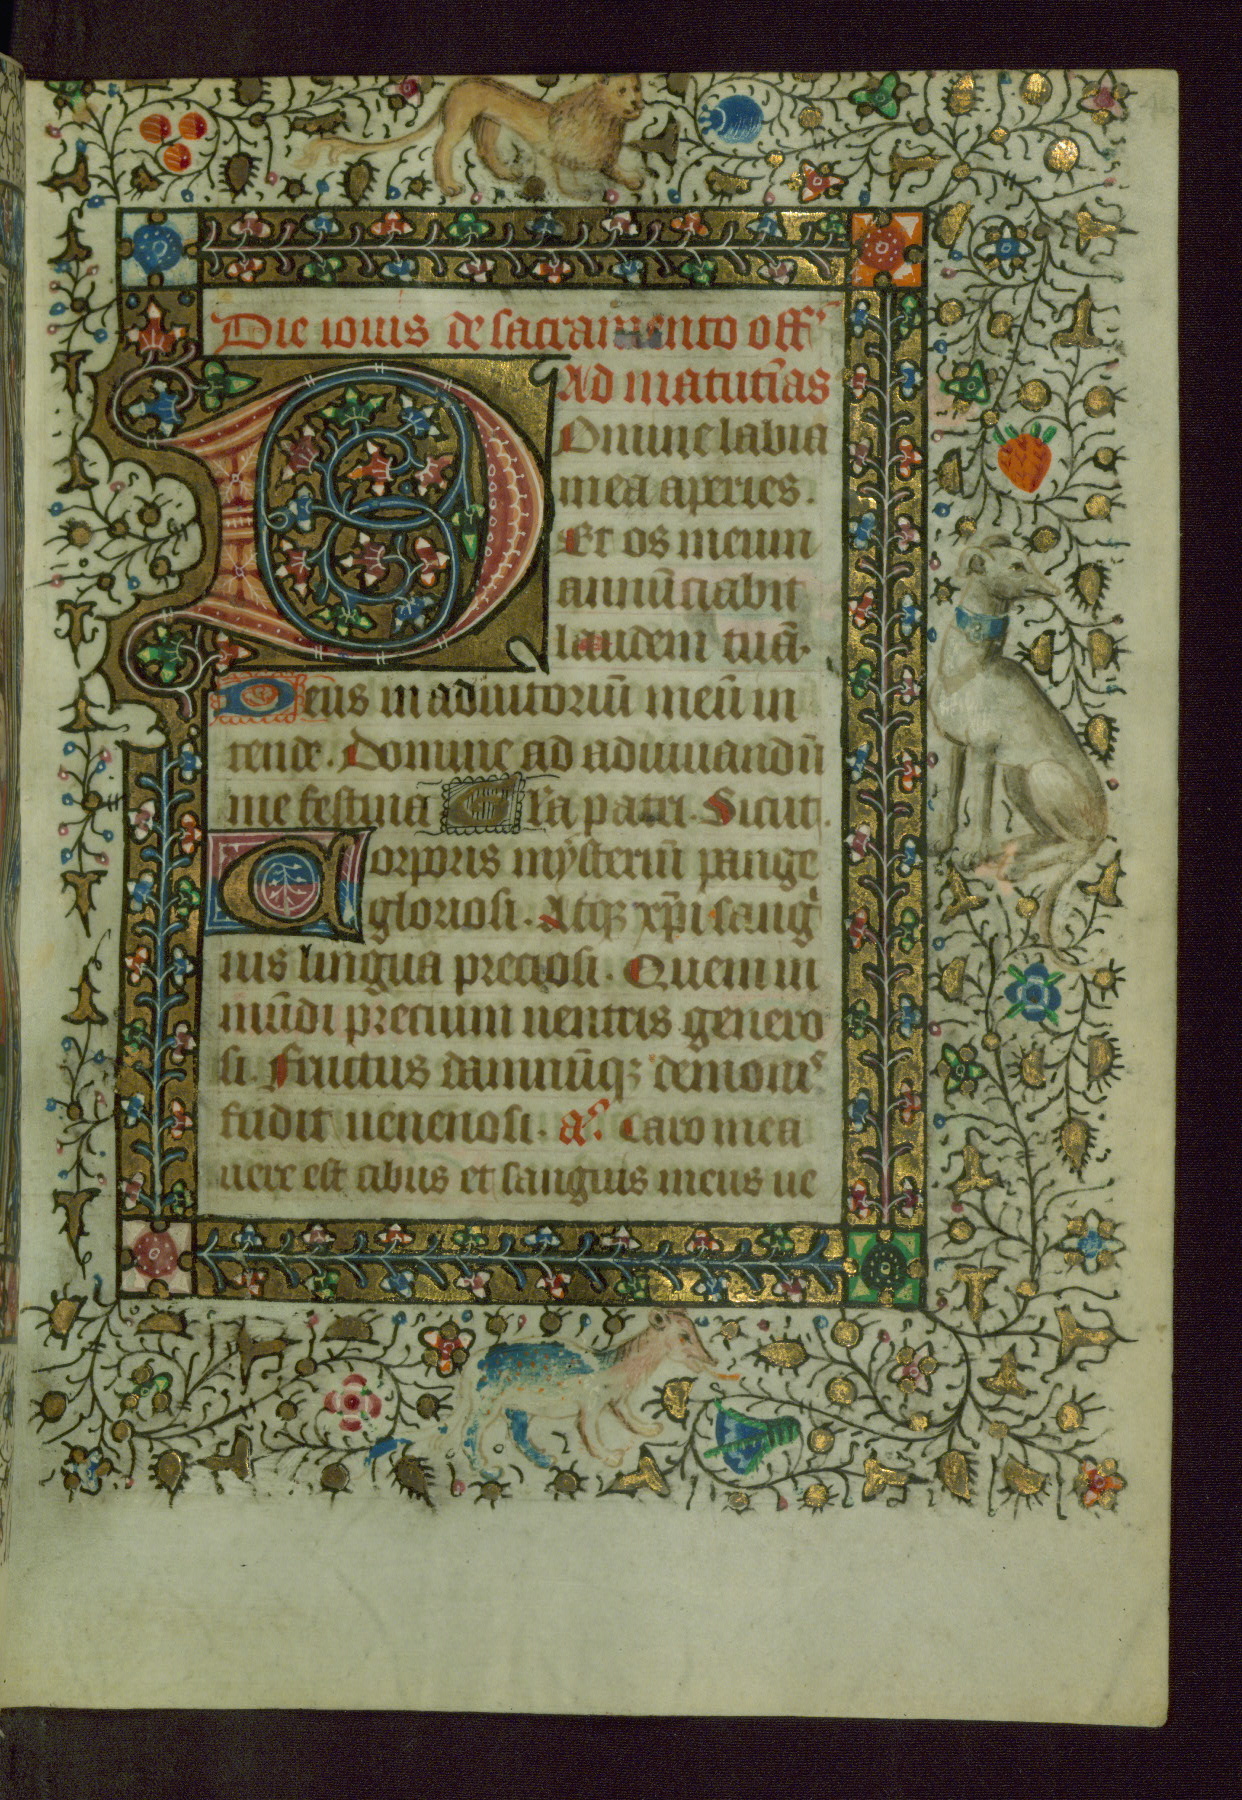 Die iouis de sacramento offᵐ
Ad matuti᷎as
Domine labia
mea aperies.
Et os meum
annūciabit
laudem tuā.
Deus in adiutoriū meū in
tende. Domine ad adiuuandū
me festina Glīa patri. Sicut.
Corporis mẏsteriū pange
gloriosi. Atqꝫ xp̄i sang
uis lingua preciosi. Quem in
mūdi precium uentris genero
si. Fructus damnūqꝫ demonis
fudit uenenosi. aⁿ. Caro mea
uere est cibus et sanguis meus ue